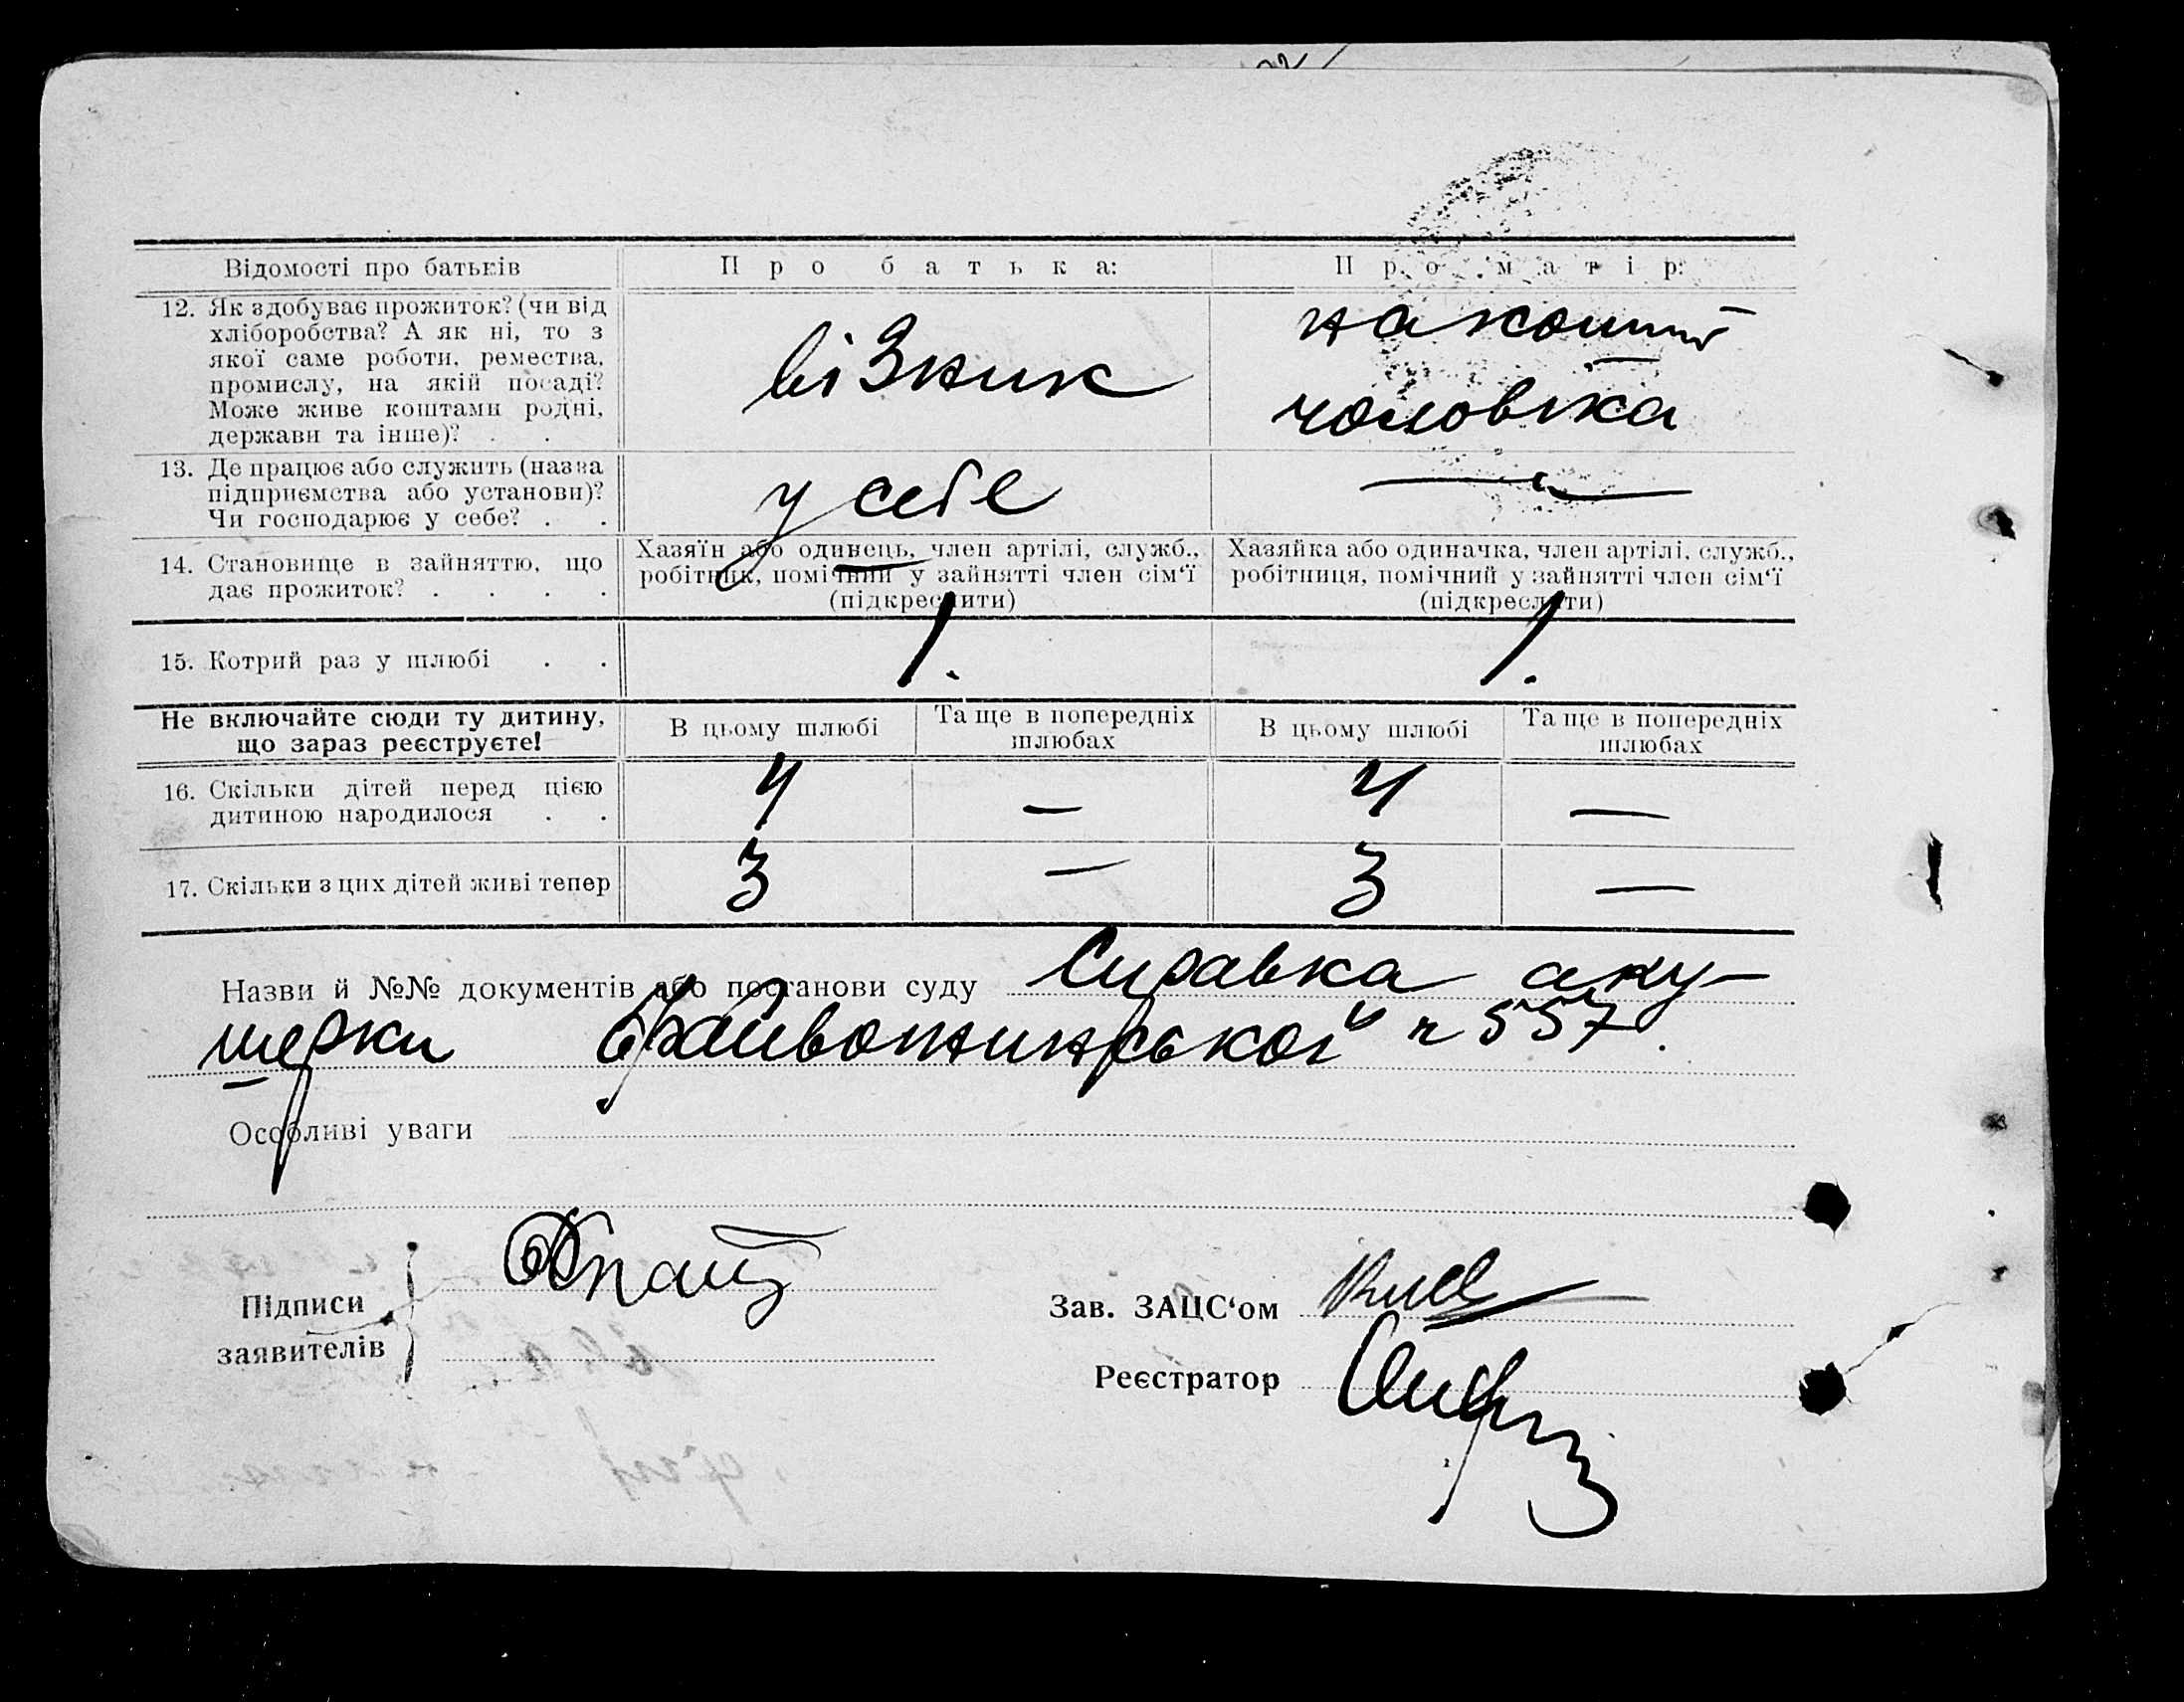 Відомості про батьків
Про батька:
Про матір:
12. Як здобуває прожиток? (чи від
хліборобства? А як ні, то з
якої саме роботи, ремества,
промислу, на якій посаді?
Може живе коштами родні,
держави та інше)? . .
візник
на кошти
чоловіка
13. Де працює або служить (назва
підприємства або установи)?
Чи господарює у себе? . .
у себе
—„—
14. Становище в зайняттю, що
дає прожиток? . . . .
Хазяїн або одинець, член артілі, служб.,
робітник, помічний у зайнятті член сім‘ї
(підкреслити)
Хазяйка або одиначка, член артілі, служб.,
робітниця, помічний у зайнятті член сім‘ї
(підкреслити)
15. Котрий раз у шлюбі . .
1.
1.
Не включайте сюди ту дитину,
що зараз реєструєте!
В цьому шлюбі
Та ще в попередніх
шлюбах
В цьому шлюбі
Та ще в попередніх
шлюбах
16. Скільки дітей перед цією
дитиною народилося . .
4
—
4
—
17. Скільки з цих дітей живі тепер
3
—
3
—
Назви й №№ документів або постанови суду Справка аку-
шерки 557.
Особливі уваги
Підписи
заявителів
Зав. ЗАЦС‘ом
Реєстратор